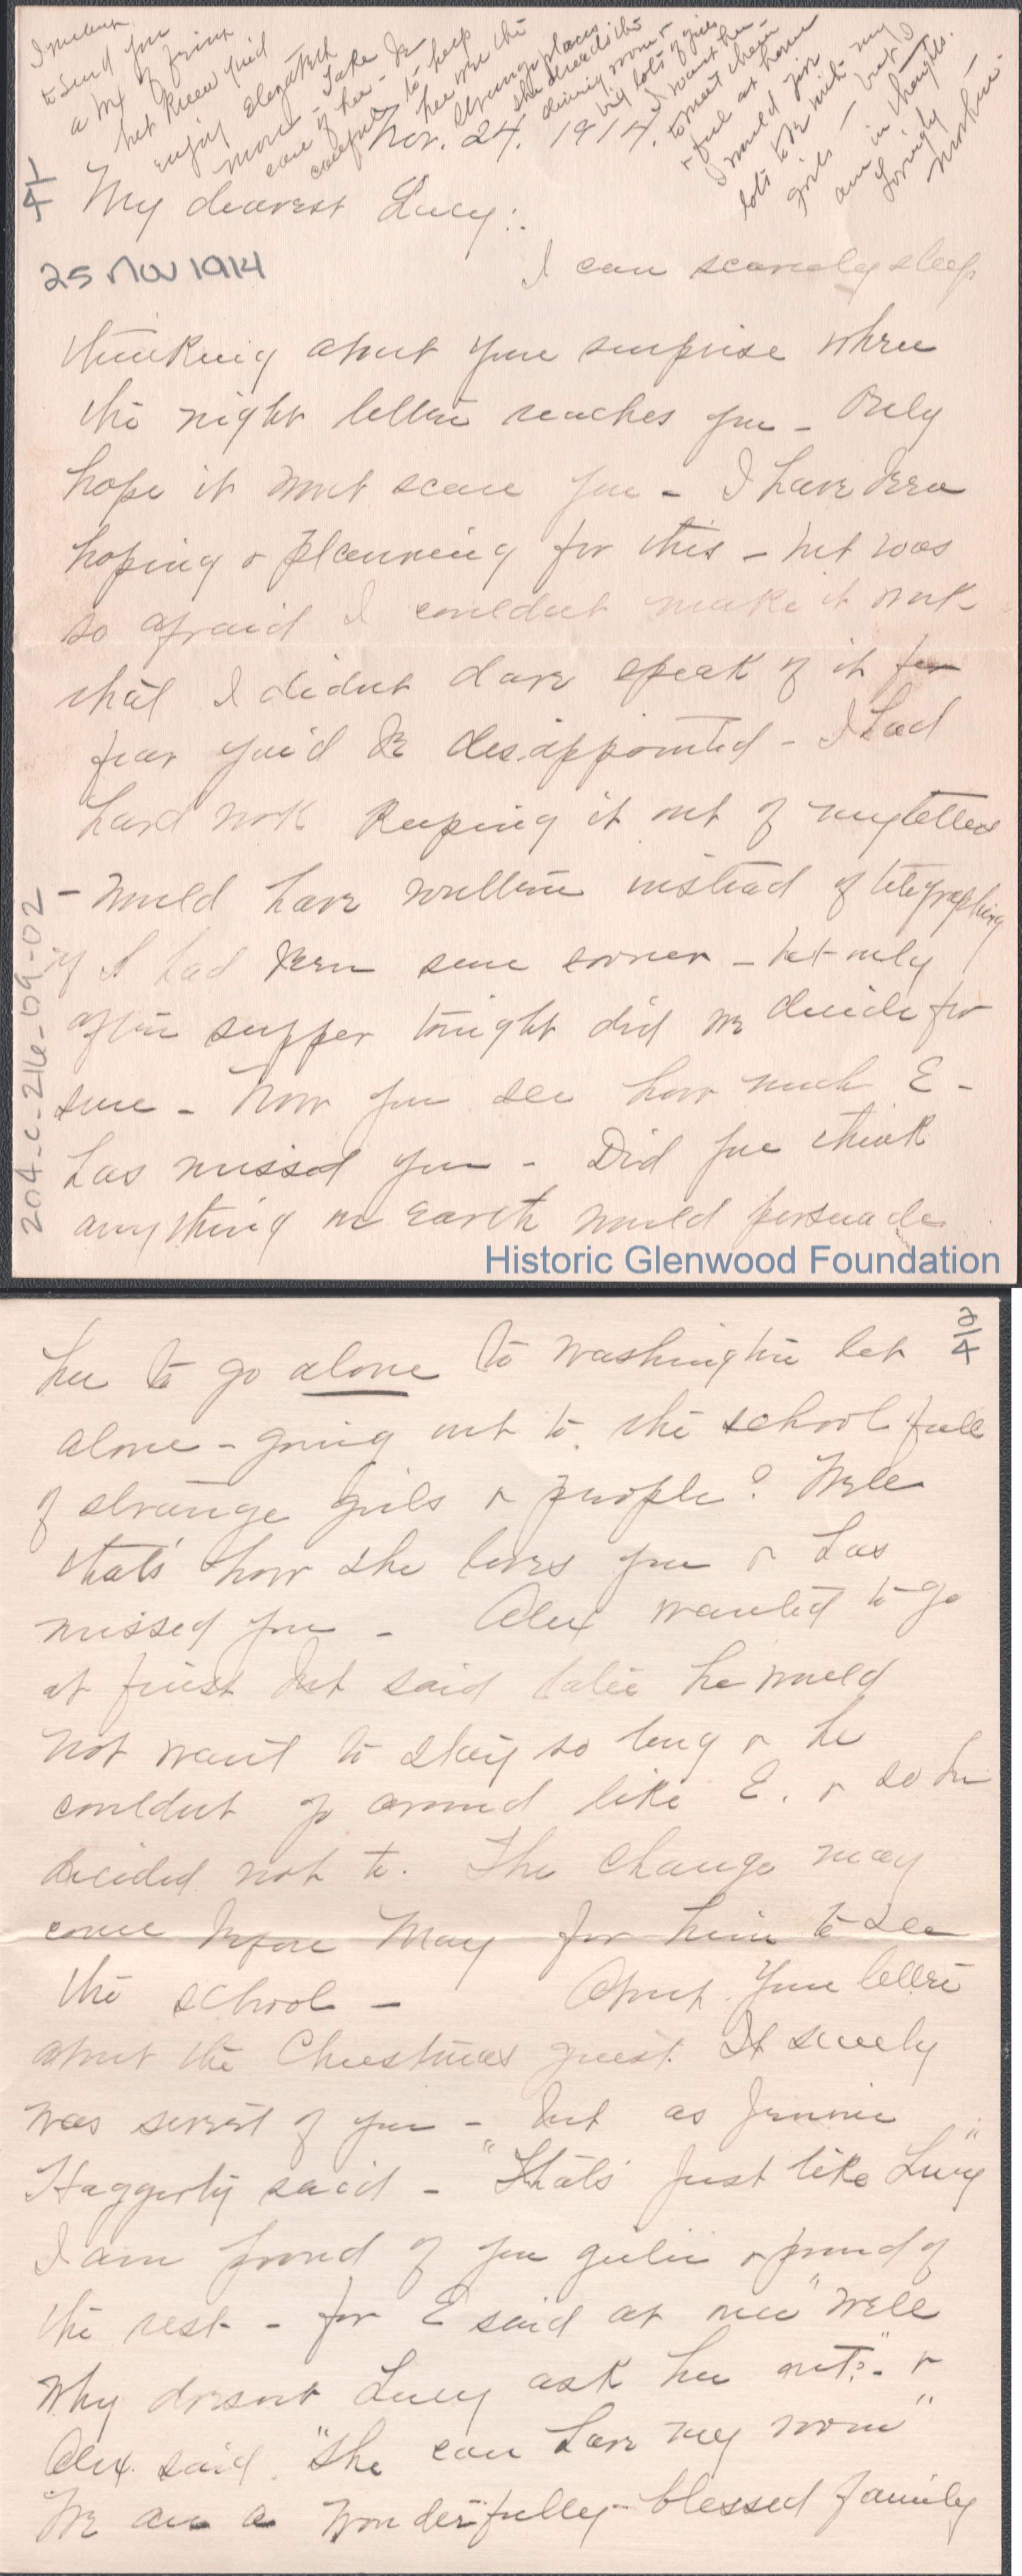 I meant
to send you
a box of fruit
but knew you'd
enjoy Elizabeth
more - Take
care of her - Be
careful to help
her over the
strange places
she dreads the
dining room &
big lots of girls
I want her
to meet them
& feel at home
I would give
lots to be with my
girls - but I
am in thought.
Lovingly
Mother.
Nov. 24. 1914.
4/1
My dearest Lucy:
25 Nov 1914
I can scarcely sleep
thinking about your surprise when
the night letter reaches you - Only
hope it wont scare you - I have been
hoping & planning for this - but was
so afraid I couldnt make it work
that I didnt dare speak of it for
fear you'd be disappointed - I had
hard work keeping it out of my letters
- would have written instead of telegraphing
if I had been sure sooner - but only
after supper tonight did we decide for
sure - Now you see how much E -
has missed you - Did you think
anything on earth would persuade
204-c-216-09-02
Historic Glenwood Foundation
4/2
her to go alone to Washington let
alone - going out to the school full
of strange girls & people? Well
that's how she loves you & has
missed you - Alex wanted to go
at first but said later he would
not want to stay so long & he
couldnt go around like E. & so he
decided not to. The change may
come before May for him to see
the school - About your letter
about the Christmas guest. It surely
was sweet of you - but as Jennie
Haggerty said - "That's just like Lucy"
I am proud of you girlie & proud of
the rest - for E said at once "Well
why doesnt Lucy ask her out?" - &
Alex said "She can have my room"
We are a wonderfully-blessed family